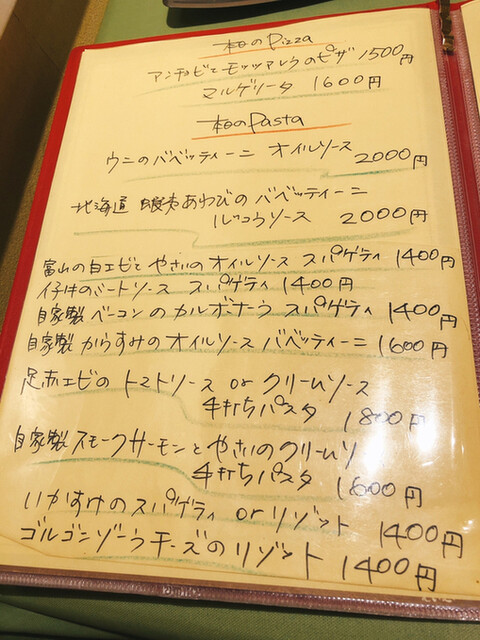 本日のPizza
アンチョビとモッツアレラのピザ 1500円
マルゲリータ 1600円
本日のPasta
ウニのバベッティーニ オイルソース 2000円
北海道 あわびのバベッティーニ
ルッコラソース 2000円
富山の白エビとやさいのオイルソース スパゲティ 1400円
ミートソース スパゲティ 1400円
自家製ベーコンのカルボナーラ スパゲティ 1400円
自家製からすみのオイルソース バベッティーニ 1600円
足赤エビのトマトソース or クリームソース
手打ちパスタ 1800円
自家製スモークサーモンとやさいのクリームソ
手打ちパスタ 1600円
いかすみのスパゲティ or リゾット 1400円
ゴルゴンゾーラチーズのリゾット 1400円